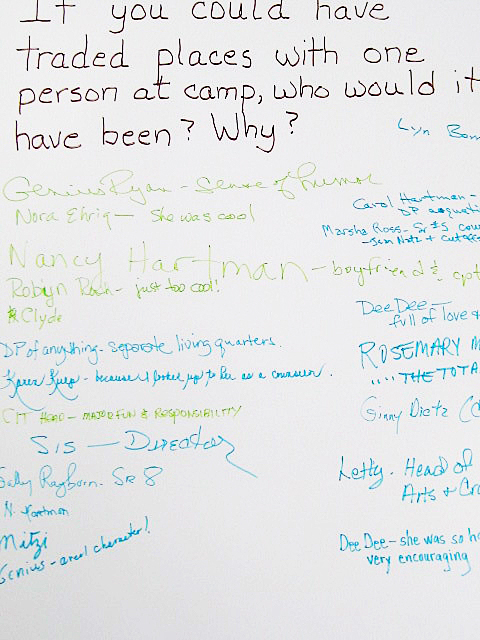 If you could have
traded places with one
person at camp, who would it
have been? Why?
Lyn
Genius Ryan - sense of humor
Nora Ehrig — She was cool
Nancy Hartman - boyfriend &
Robyn - just too cool!
& Clyde
DP of anything - separate living quarters.
Karen - because I looked up to her as a counselor.
CIT HEAD - MAJOR FUN & RESPONSIBILITY
SIS — Director
Sally Rayburn. SR 8
N. Hartman
Mitzi
Genius - a real character!
Carol Hartman -
DP
Marsha Ross -
Dee Dee —
full of love &
ROSEMARY
.... THE TOTA
Ginny Dietz
Letty. Head of
Arts &
Dee Dee - she was so
very encouraging